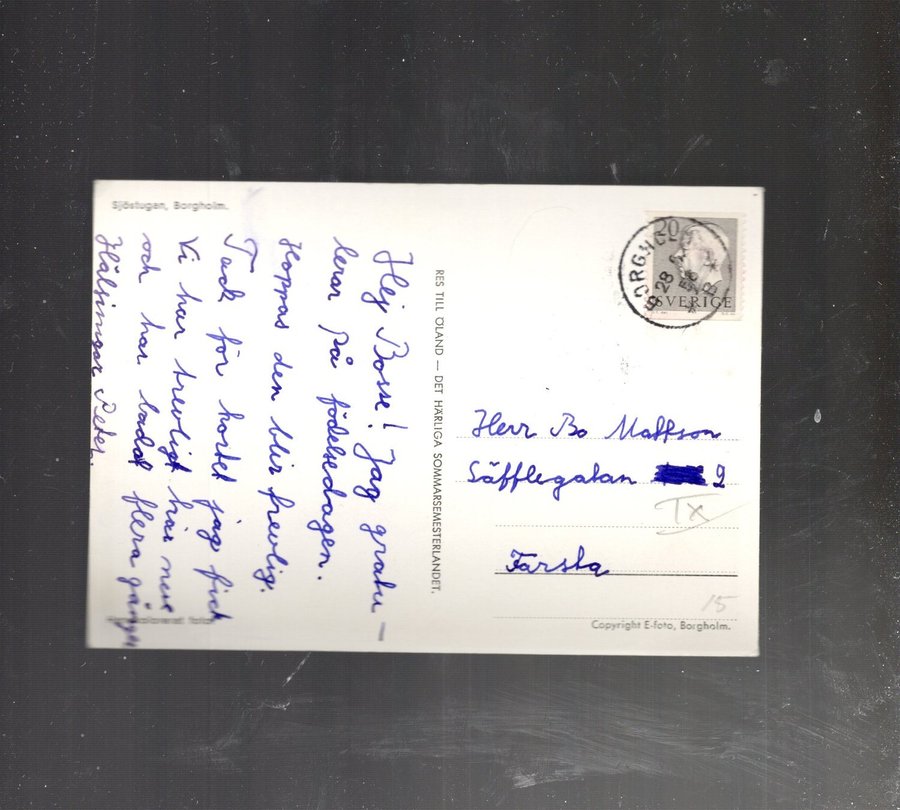 Sjöstugen, Borgholm.
Hej Bosse! Jag gratu-
lerar på födelsedagen.
Hoppas den blir trevlig.
Tack för kortet jag fick
Vi har trevligt här nere
och har badat flera gånger
Hälsningar Peter.
RES TILL ÖLAND — DET HÄRLIGA SOMMARSEMESTERLANDET.
20
SVERIGE
BORGHOLM
28
Herr Bo Mattson
Säfflegatan 9
TX
Farsta
15
Copyright E-foto, Borgholm.